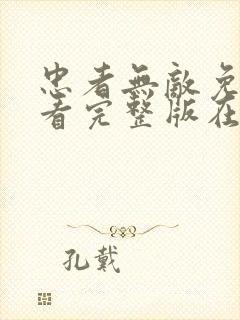 忠者無敵免
看完整版在
孔戴